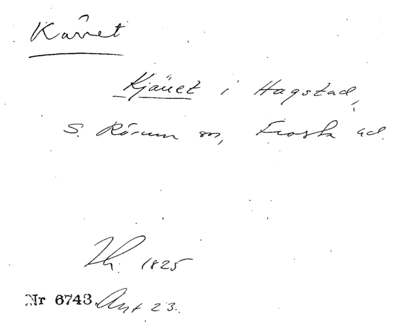 Kävet
Kjäuet i Hagstad,
S. Rörum sn, Frosta hd.
Th. 1825
Nr 6743 Ant 23.